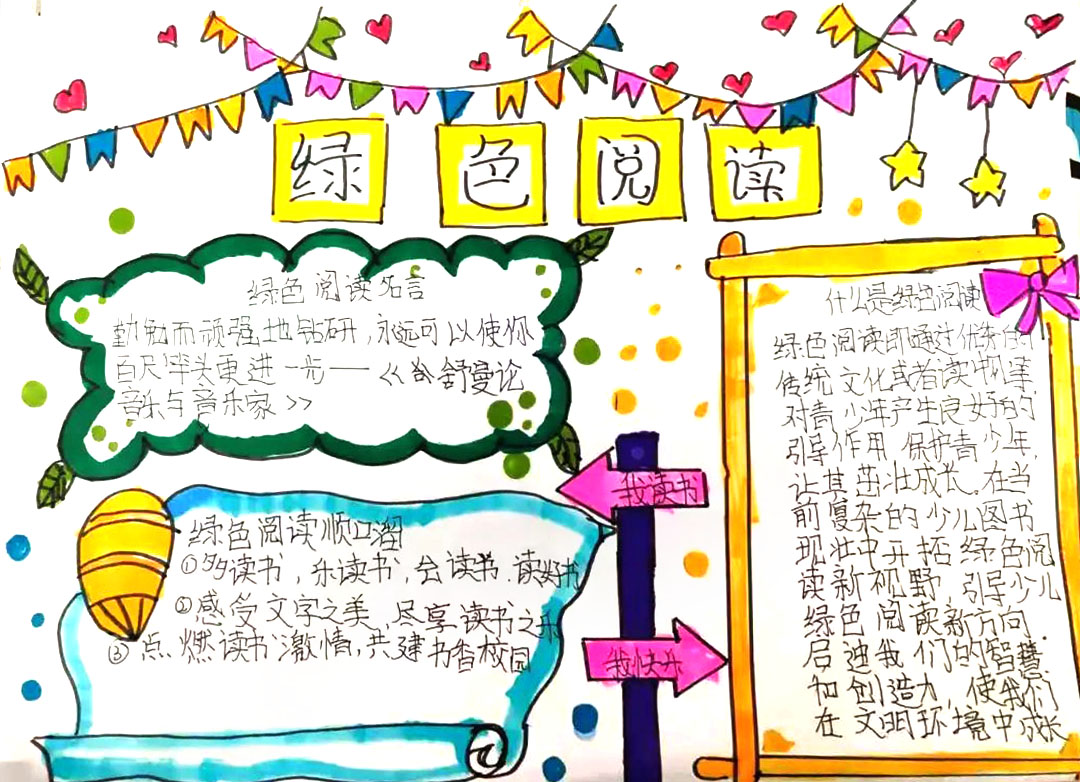 绿色阅读
绿色阅读名言
勤勉而顽强地钻研,永远可以使你
百尺竿头更进一步——《舒曼论
音乐与音乐家》
绿色阅读顺口溜
①多读书,乐读书,会读书.读好书
②感受文字之美,尽享读书之乐
③点燃读书激情,共建书香校园
我读书
我快乐
什么是绿色阅读
绿色阅读即通过优秀的
传统文化或者读中
对青少年产生良好的
引导作用.保护青少年
让其茁壮成长.在当
前复杂的少儿图书
现壮中开拓绿色阅
读新视野,引导少儿
绿色阅读新方向.
启迪我们的智慧
和创造力,使我们
在文明环境中成长